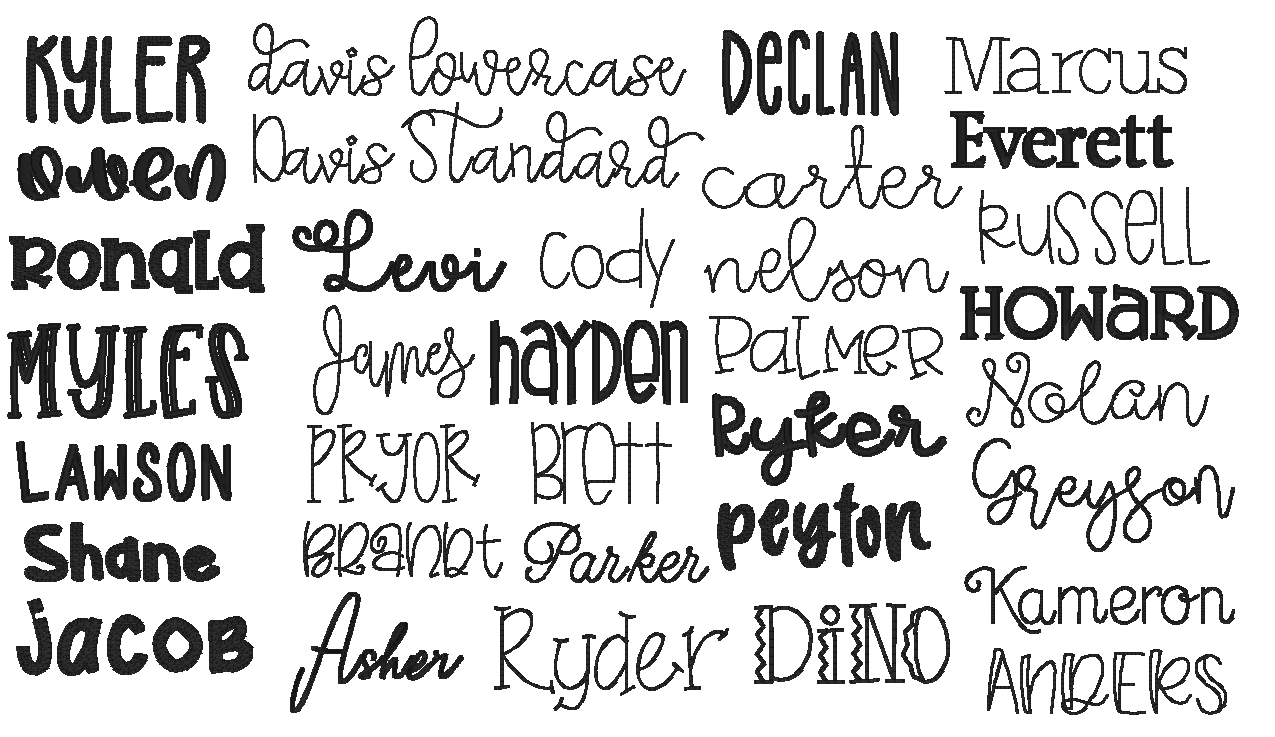 KYLER
owen
Ronald
MYLES
LAWSON
Shane
jacoB
davis lowercase
Davis Standard
Levi
cody
James
hayDen
PRyOR
Brett
BRanDt
Parker
Asher
Ryder
DecLAN
carter
nelson
PaLMeR
Ryker
peyton
DiNO
Marcus
Everett
RuSSeLL
HOWaRD
Nolan
Greyson
Kameron
AnDERS